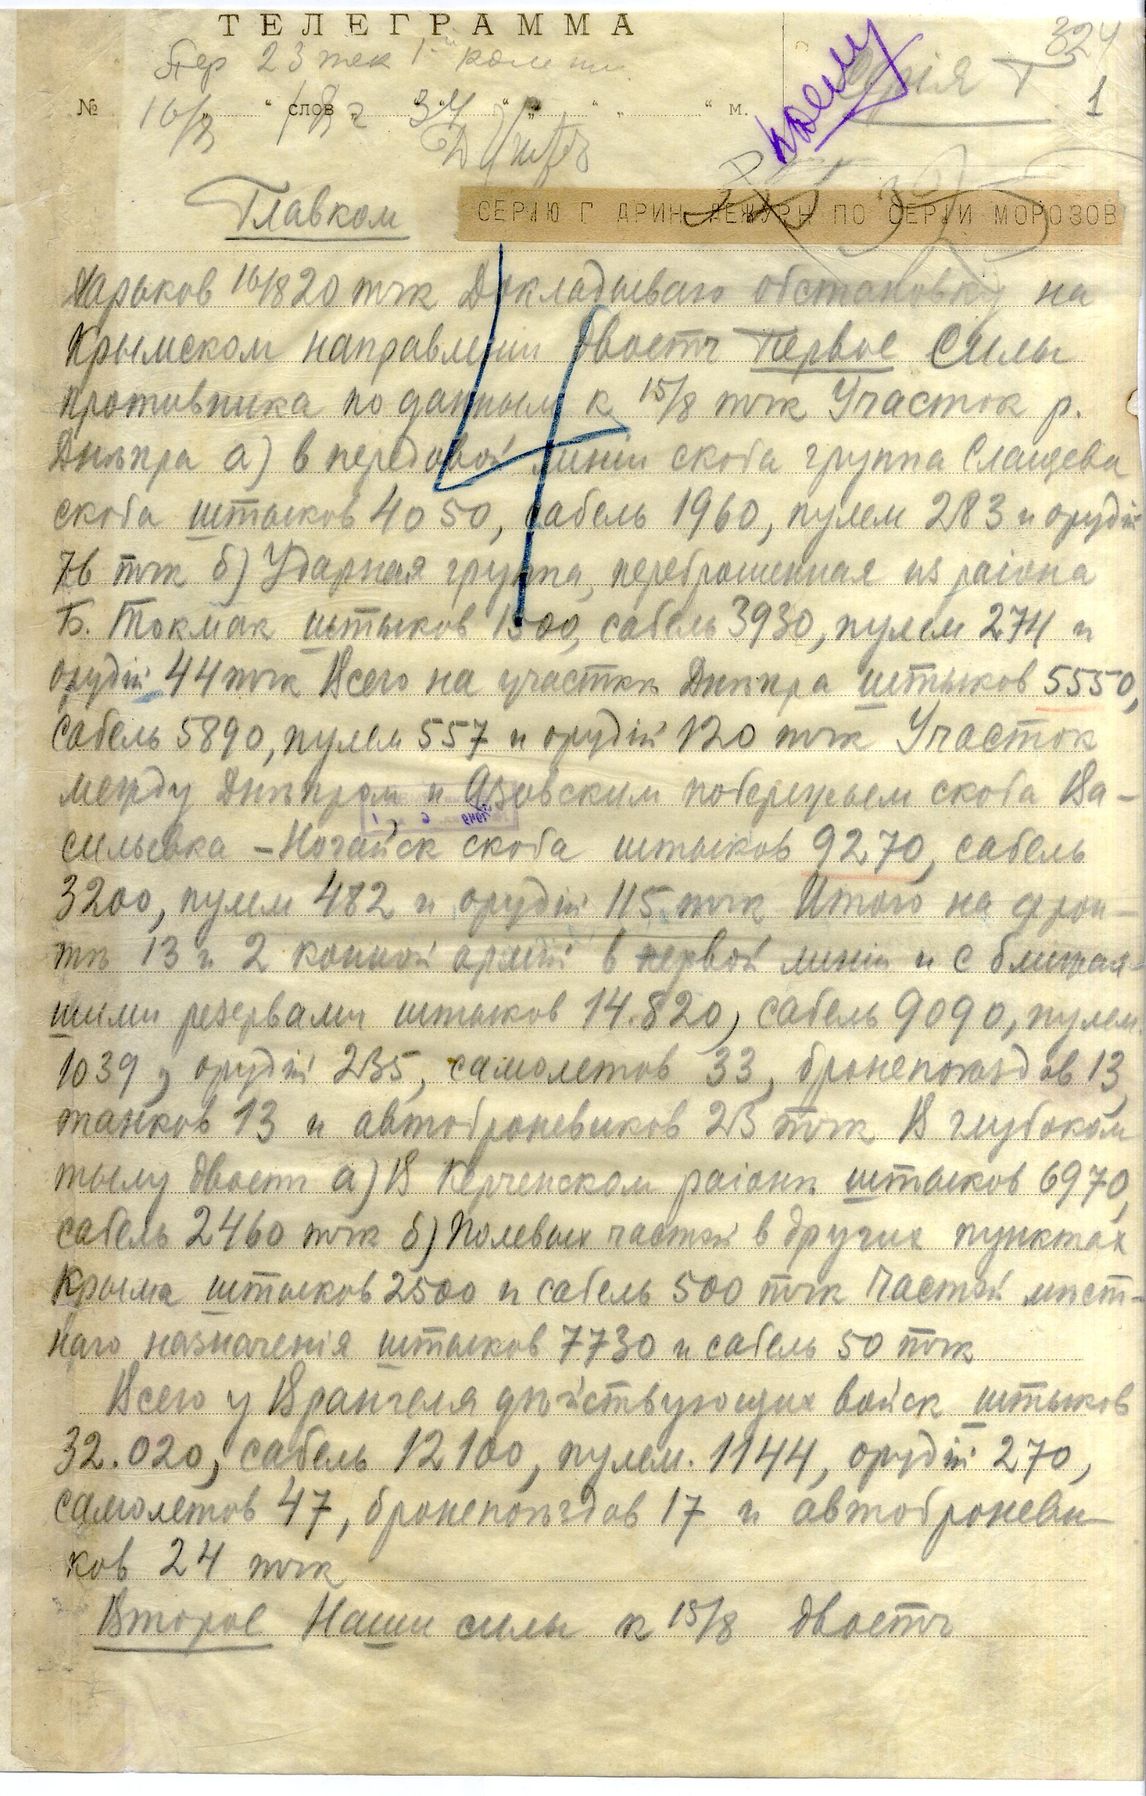 ТЕЛЕГРАММА
324
Серія Г.
1
№ 16/8 " слов " " " " м.
Главком
СЕРІЮ Г АРИН ДЕЖУРН ПО СЕРІИ МОРОЗОВ
Харьков 16/820 тчк Докладываю обстановку на
Крымском направлении двоетч Первое Силы
противника по данным к 15/8 тчк Участок р.
Днѣпра а) в передовой линіи скоба группа Слащева
скоба штыков 4050, сабель 1960, пулем 283 и орудій
76 тчк б) Ударная группа, переброшенная из раіона
Б. Токмак штыков 1500, сабель 3930, пулем 274 и
орудій 44 тчк Всего на участкѣ Днѣпра штыков 5550,
сабель 5890, пулем 557 и орудій 120 тчк Участок
между Днѣпром и Азовским побережьем скоба Ва-
сильевка - Ногайск скоба штыков 9270, сабель
3200, пулем 482 и орудій 115 тчк Итого на фрон-
тѣ 13 и 2 конной армій в первой линіи и с ближай-
шими резервами штыков 14.820, сабель 9090, пулем
1039, орудій 235, самолетов 33, бронепоѣздов 13,
танков 13 и автоброневиков 23 тчк В глубоком
тылу двоетч а) В Керченском раіонѣ штыков 6970,
сабель 2460 тчк б) Полевых частей в других пунктах
Крыма штыков 2500 и сабель 500 тчк Частей мѣст-
наго назначенія штыков 7730 и сабель 50 тчк
Всего у Врангеля дѣйствующих войск штыков
32.020, сабель 12100, пулем. 1144, орудій 270,
самолетов 47, бронепоѣздов 17 и автоброневи-
ков 24 тчк
Второе Наши силы к 15/8 двоетч